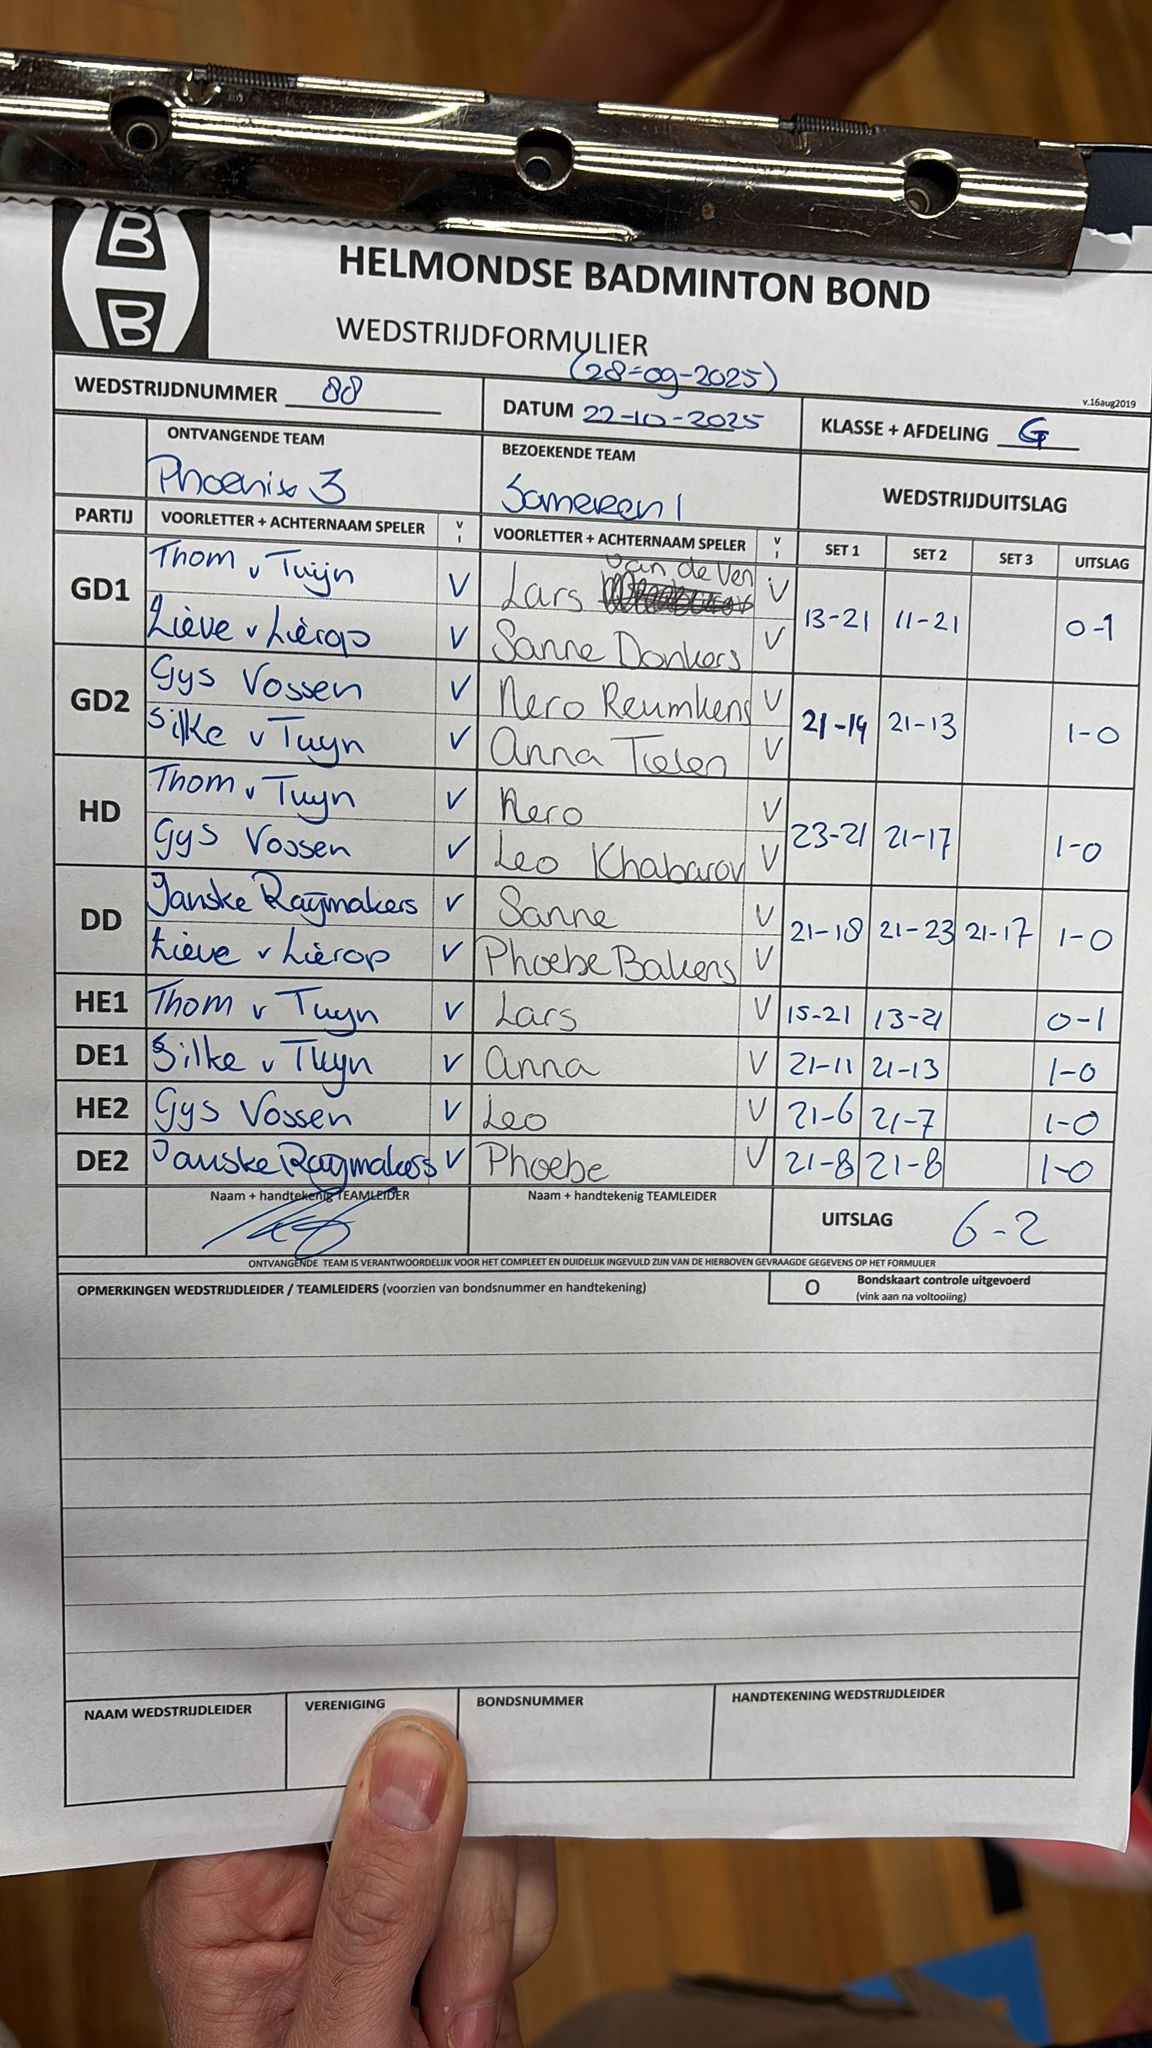 B
B
HELMONDSE BADMINTON BOND
WEDSTRIJDFORMULIER
(28-09-2025)
v.16aug2019
WEDSTRIJDNUMMER 88 DATUM 22-10-2025 KLASSE + AFDELING G
ONTVANGENDE TEAM BEZOEKENDE TEAM WEDSTRIJDUITSLAG
Phoenix 3 Someren 1
PARTIJ VOORLETTER + ACHTERNAAM SPELER V I VOORLETTER + ACHTERNAAM SPELER V I SET 1 SET 2 SET 3 UITSLAG
GD1 Thom v Tuijn V Lars van de Ven V 13-21 11-21 0-1
Lieve v Lierop V Sanne Donkers V
GD2 Gys Vossen V Nero Reumkens V 21-14 21-13 1-0
Silke v Tuyn V Anna Tielen V
HD Thom v Tuyn V Nero V 23-21 21-17 1-0
Gys Vossen V Leo Khabarov V
DD Janske Raymakers V Sanne V 21-18 21-23 21-17 1-0
Lieve v Lierop V Phoebe Bakens V
HE1 Thom v Tuyn V Lars V 15-21 13-21 0-1
DE1 Silke v Tuyn V Anna V 21-11 21-13 1-0
HE2 Gys Vossen V Leo V 21-6 21-7 1-0
DE2 Janske Raymakers V Phoebe V 21-8 21-8 1-0
Naam + handtekenig TEAMLEIDER Naam + handtekenig TEAMLEIDER UITSLAG 6-2
ONTVANGENDE TEAM IS VERANTWOORDELIJK VOOR HET COMPLEET EN DUIDELIJK INGEVULD ZIJN VAN DE HIERBOVEN GEVRAAGDE GEGEVENS OP HET FORMULIER
OPMERKINGEN WEDSTRIJDLEIDER / TEAMLEIDERS (voorzien van bondsnummer en handtekening) O Bondskaart controle uitgevoerd
(vink aan na voltooiing)
NAAM WEDSTRIJDLEIDER VERENIGING BONDSNUMMER HANDTEKENING WEDSTRIJDLEIDER